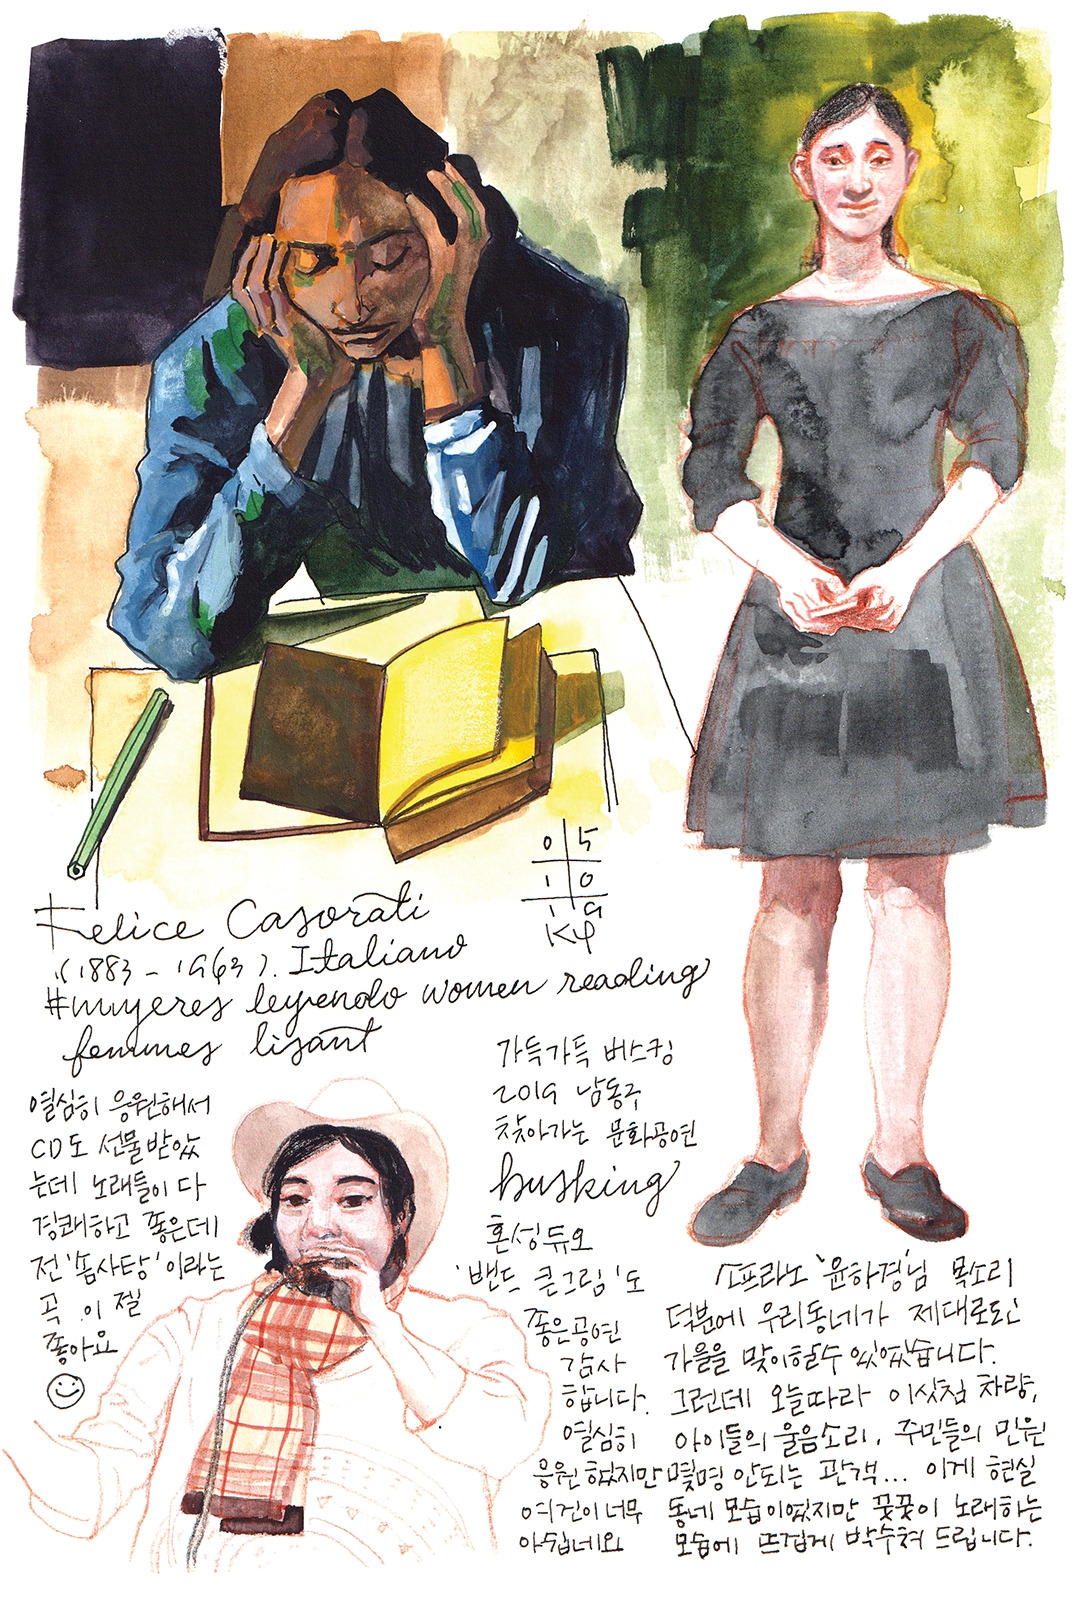 0 5
1 0
1 9
Kφ
Felice Casorati
(1883 - 1963). Italiano
#mujeres leyendo women reading
femmes lisant
가득가득 버스킹
2019 남동구
찾아가는 문화공연
busking
혼성듀오
'밴드 큰그림'도
좋은공연
감사
합니다.
열심히
응원했지만
여건이 너무
아쉽네요
열심히 응원해서
CD도 선물받았
는데 노래들이 다
경쾌하고 좋은데
전 '솜사탕'이라는
곡이 젤
좋아요
소프라노 '윤하경'님 목소리
덕분에 우리동네가 제대로된
가을을 맞이할수 있었습니다.
그런데 오늘따라 이삿짐 차량,
아이들의 울음소리, 주민들의 민원
몇명 안되는 관객... 이게 현실
동네 모습이였지만 꿋꿋이 노래하는
모습에 뜨겁게 박수쳐 드립니다.